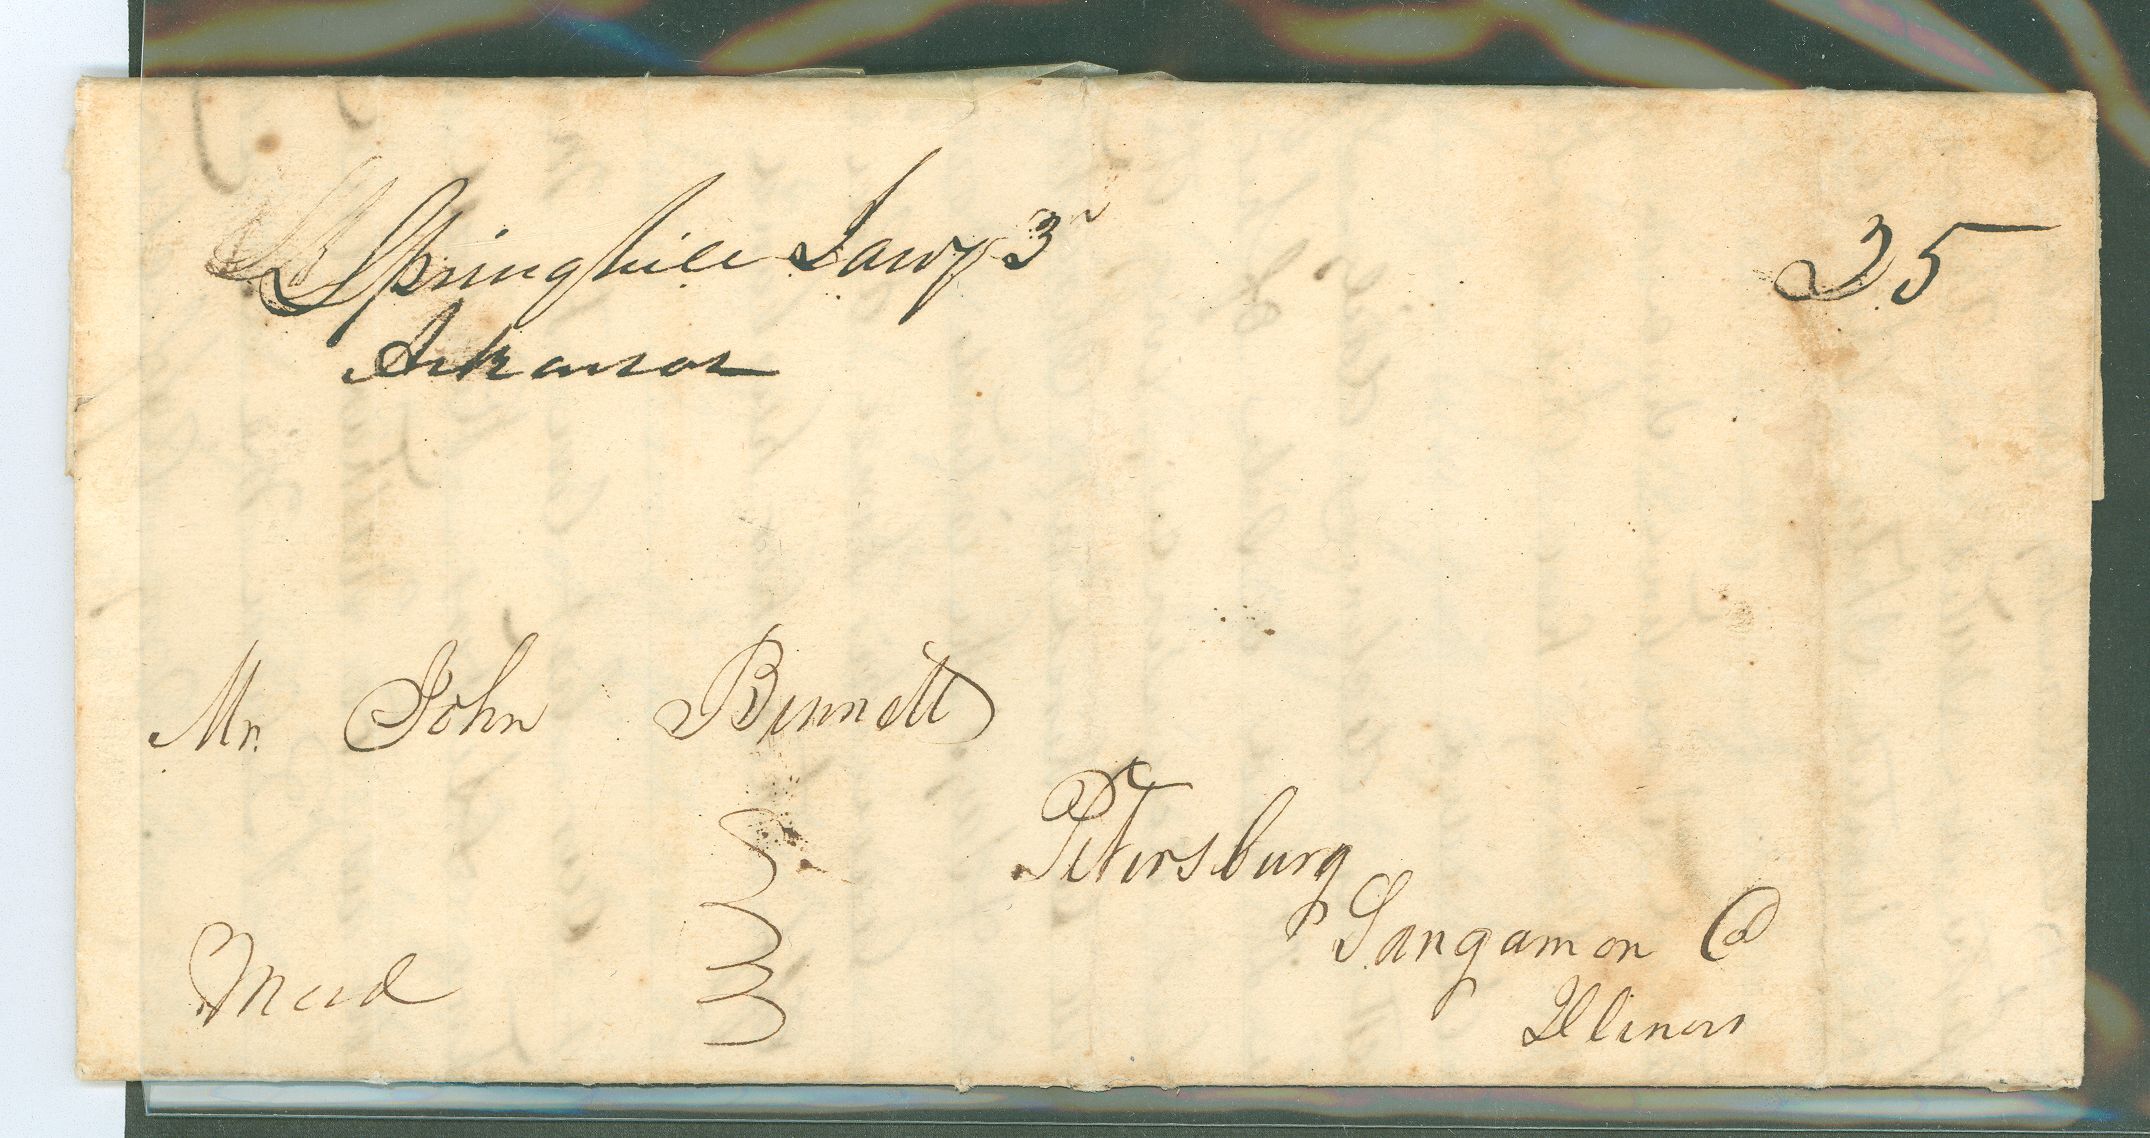 Springhill Jany 3
Arkansas
25
Mr. John Bennett
Petersburg
Sangamon Co
Illinois